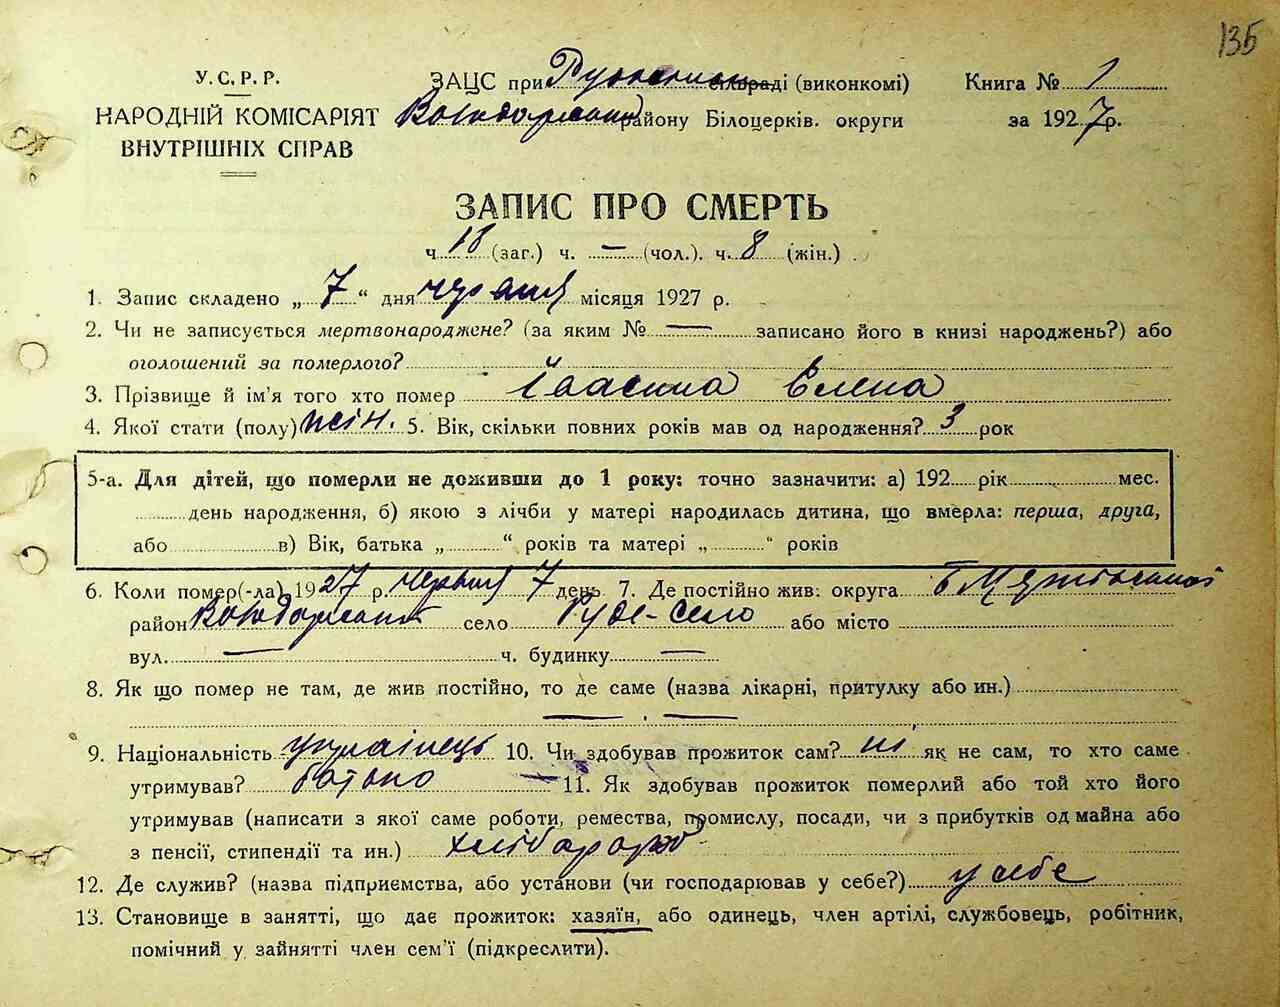 135
У.С.Р.Р.
НАРОДНІЙ КОМІСАРІЯТ
ВНУТРІШНІХ СПРАВ
ЗАЦС при сільраді (виконкомі)
Володарський району Білоцерків. округи
Книга № 1
за 1927 р.
ЗАПИС ПРО СМЕРТЬ
ч. 18 (заг.) ч. — (чол.). ч. 8 (жін.)
1. Запис складено „ 7 “ дня червня місяця 1927 р.
2. Чи не записується мертвонароджене? (за яким № — записано його в книзі народжень?) або
оголошений за померлого?
3. Прізвище й ім'я того хто помер Івасина Елена
4. Якої стати (полу) жін. 5. Вік, скільки повних років мав од народження? 3 рок
5-а. Для дітей, що померли не доживши до 1 року: точно зазначити: а) 192 рік мес.
день народження, б) якою з лічби у матері народилась дитина, що вмерла: перша, друга,
або в) Вік, батька „ “ років та матері „ “ років
6. Коли помер(-ла) 1927 р. червня 7 день 7. Де постійно жив: округа
район Володарський село Руде-Село або місто
вул. — ч. будинку —
8. Як що помер не там, де жив постійно, то де саме (назва лікарні, притулку або ин.)
— —
9. Національність українець 10. Чи здобував прожиток сам? ні як не сам, то хто саме
утримував? батько — 11. Як здобував прожиток померлий або той хто його
утримував (написати з якої саме роботи, ремества, промислу, посади, чи з прибутків од майна або
з пенсії, стипендії та ин.) хлібороб
12. Де служив? (назва підприємства, або установи (чи господарював у себе?) у себе
13. Становище в занятті, що дає прожиток: хазяїн, або одинець, член артілі, службовець, робітник,
помічний у зайнятті член сем'ї (підкреслити).